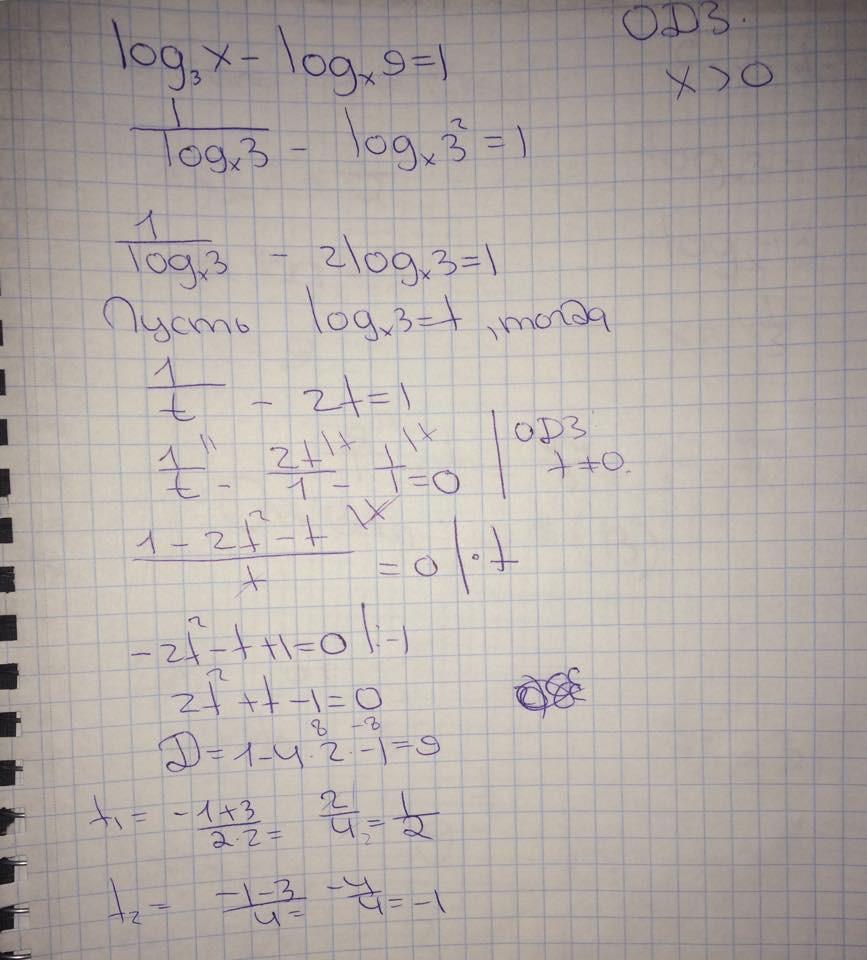 log₃x - logₓ9 = 1
ОДЗ.
x > 0
1/logₓ3 - logₓ3² = 1
1/logₓ3 - 2logₓ3 = 1
Пусть logₓ3 = t, тогда
1/t - 2t = 1
1/t |1 - 2t/1 |t - 1 |t = 0
ОДЗ
t ≠ 0.
(1 - 2t² - t)/t = 0 | · t
-2t² - t + 1 = 0 | : -1
2t² + t - 1 = 0
D = 1 - 4 · 2 · -1 = 9
8 -8
t₁ = (-1 + 3)/(2 · 2) = 2/4 = 1/2
t₂ = (-1 - 3)/4 = -4/4 = -1